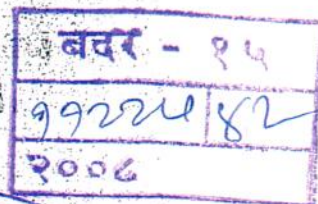 बदर - १५
११२२५|४२
२००८